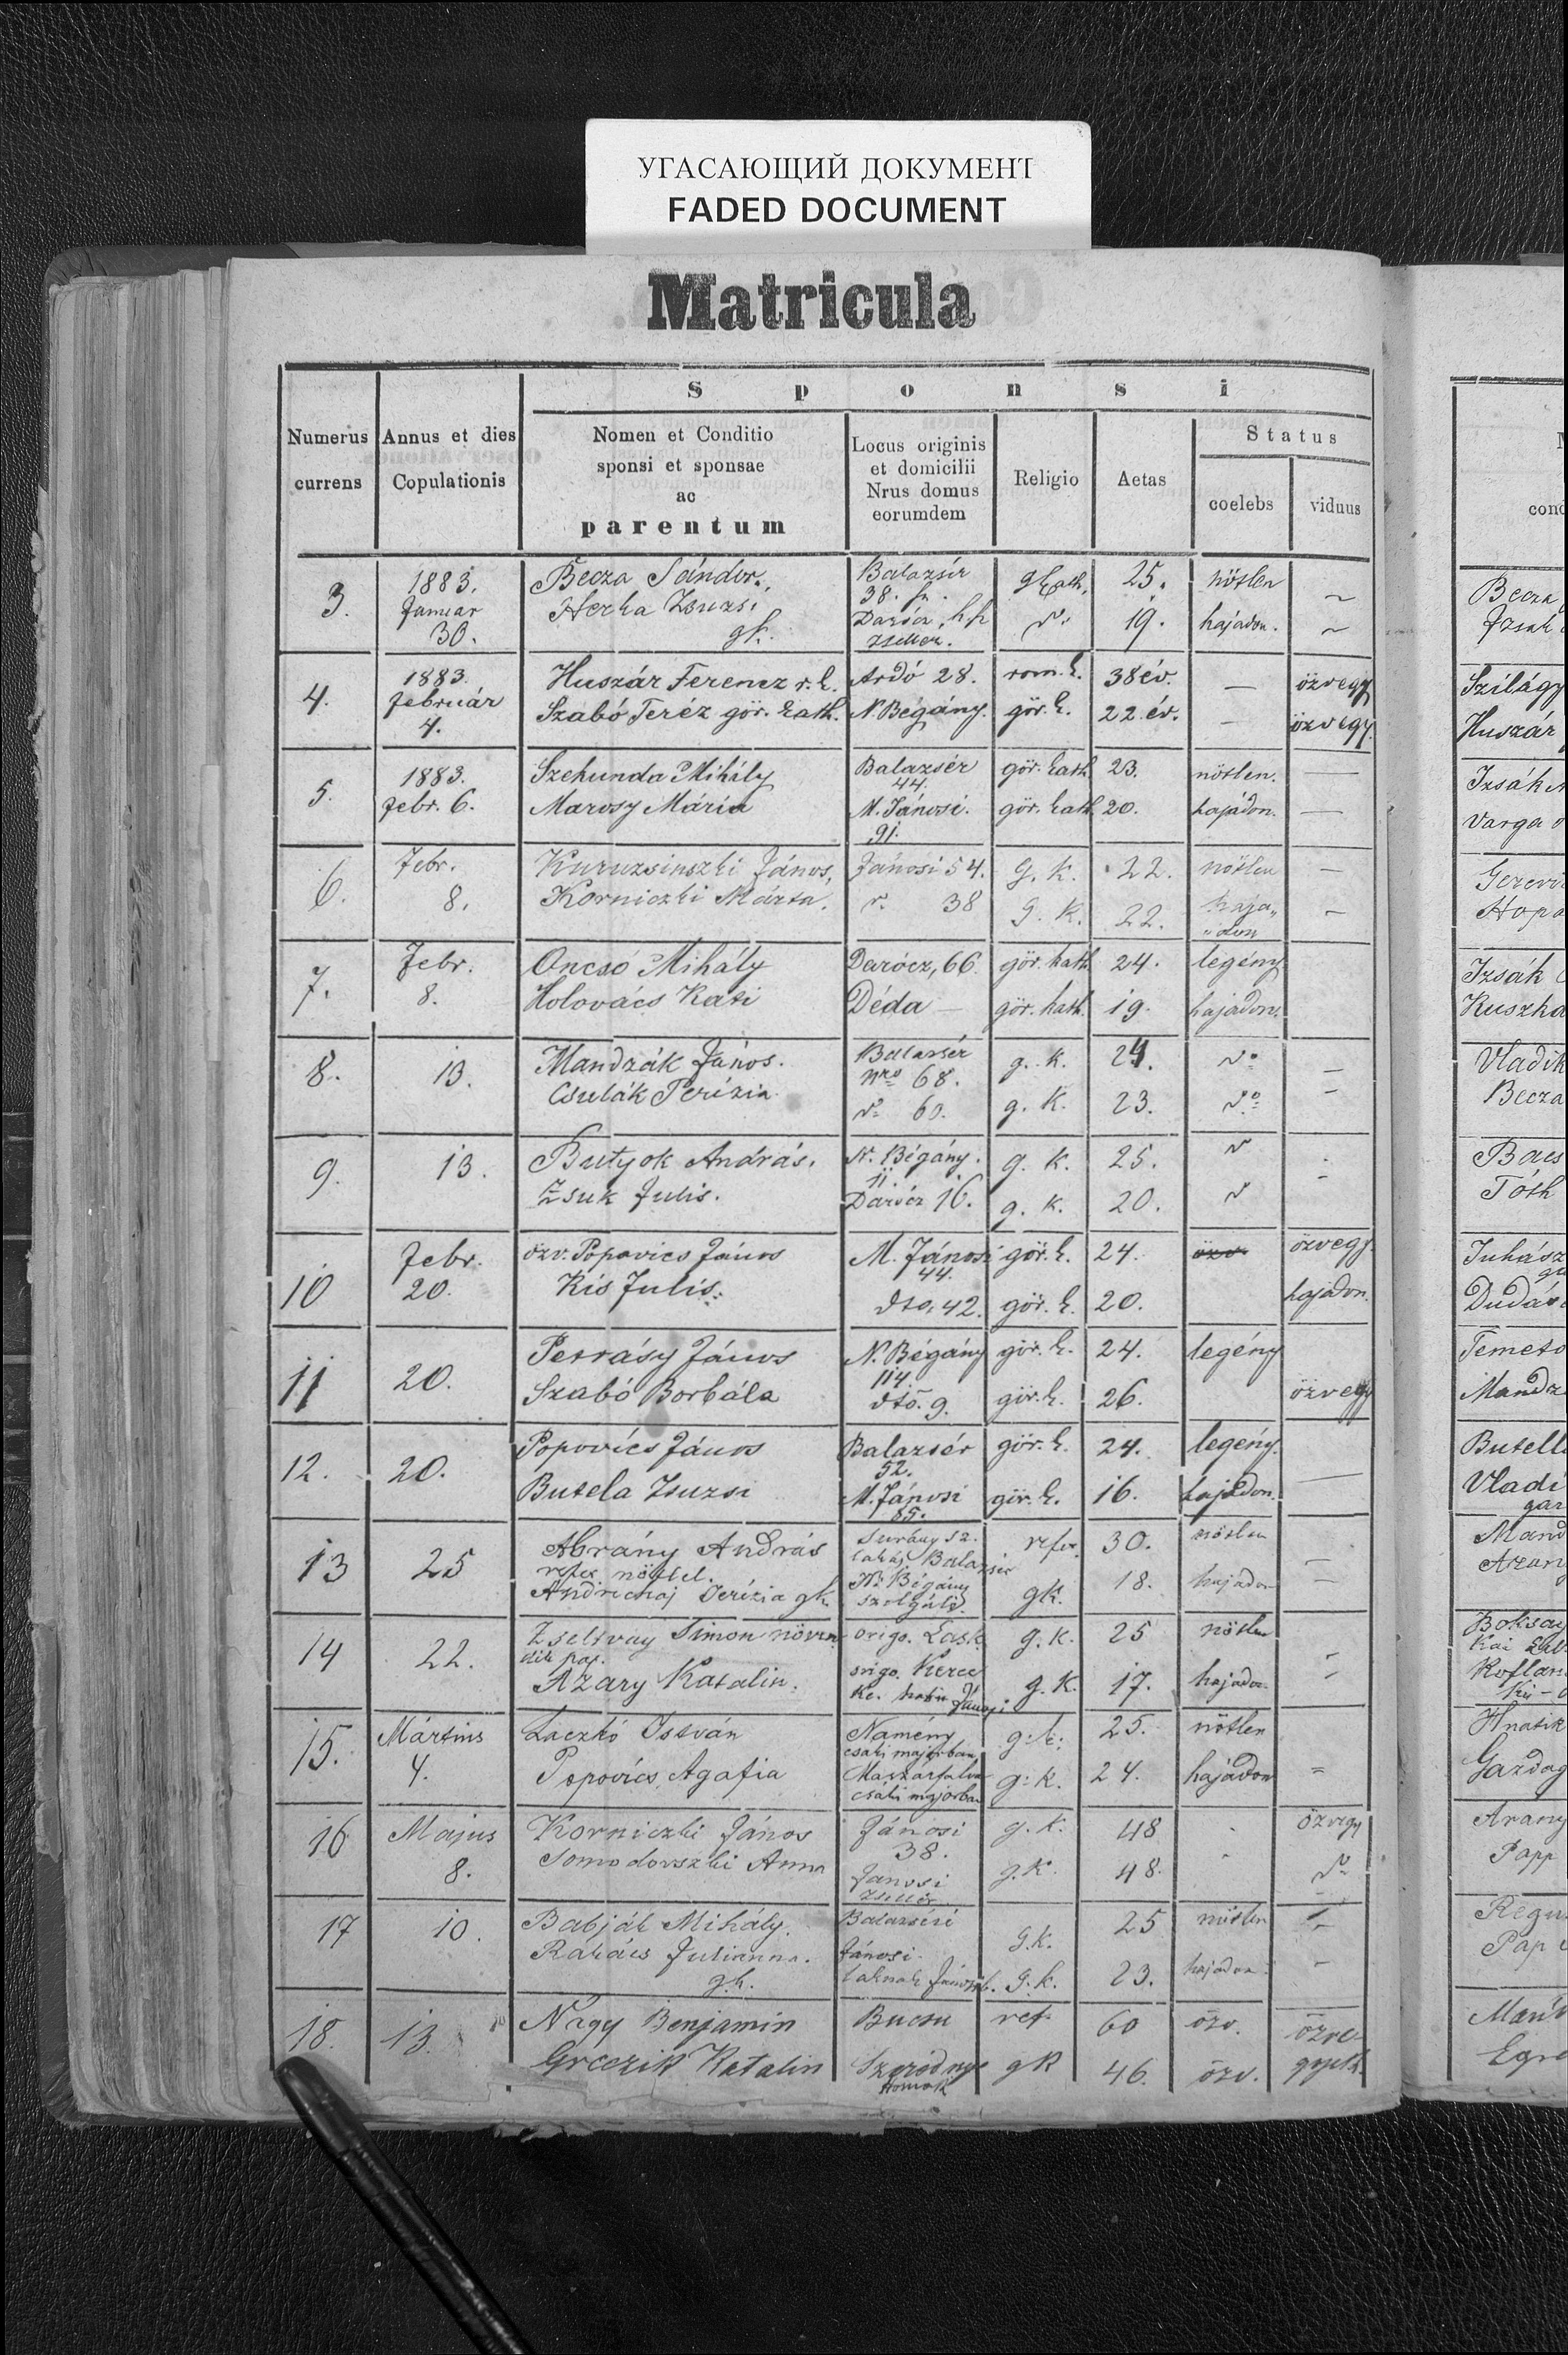 УГАСАЮЩИЙ ДОКУМЕНТ
FADED DOCUMENT
Matricula
Sponsi
Numerus currens
Annus et dies Copulationis
Nomen et Conditio sponsi et sponsae ac parentum
Locus originis et domicilii Nrus domus eorumdem
Religio
Aetas
Status
coelebs
viduus
3. 1883. Januar 30.
Becza Sándor. Balazsér 38. g Kath. 25. nőtlen ~
Herka Zsuzsi gk. Darócz zsellér. 19. hajadon. ~
Becza
4. 1883. Február 4.
Huszár Ferencz r. k. Ardó 28. rom. k. 38 év. — özvegy
Szabó Teréz gör. kath. N. Bégány. gör. k. 22. év. — özvegy.
Szilágy
Huszár
5. 1883. Febr. 6.
Szekunda Mihály Balazsér 44. gör. kath. 23. nőtlen. —
Marosy Mária M. Jánosi. 91. gör. kath. 20. hajádon. —
Izsák
Varga
6. Febr. 8.
Kuruzsinszki János, Jánosi 54. g. k. 22. nőtlen —
Korniczki Márta. 38 g. k. 22. haja„ „don —
7. Febr. 8.
Oncsó Mihály Darócz, 66. gör. kath. 24. legény
Holovács Kati Déda — gör. kath. 19. hajadon.
Izsák
8. 13.
Mandzák János. Balazsér nro 68. g. k. 24. do —
Csulák Terézia. do 60. g. k. 23. do —
Becza
9. 13.
Butyok András. N. Bégány. 11. g. k. 25.
Zsuk Julis. Darócz 16. g. k. 20.
Tóth
10 Febr. 20.
özv. Popovics János M. Jánosi 44. gör. k. 24. özv. özvegy.
Kis Julis. dto. 42. gör. k. 20. hajadon.
Juhász
11 20.
Petrásy János N. Bégány 114. gör. k. 24. legény
Szabó Borbála dtó. 9. gör. k. 26. özvegy
Temető
Mandz
12. 20.
Popovics János Balazsér 52. gör. k. 24. legény.
Butela Zsuzsi M. Jánosi 85. gör. k. 16. hajadon. —
Butell
13 25
Abrány András refor. nőtlel. lakás Balazsér refor. 30. nőtlen —
Andrichaj Terézia gk. N. Bégány szolgáló. gk. 18. hajadon —
Mand
14 22.
Zseltvay Simon origo. g. k. 25 nőtlen
Azary Katalin. origo. g. k. 17. hajadon.
15. Mártius 4.
Laczkó István Namény csáki majorban g: k: 25. nőtlen
Popovics Agafia csáki majorban g: k. 24. hajadon =
Gazdag
16 Majus 8.
Korniczki János Jánosi 38. g. k. 48 özvegy
Somodovszki Anna Janosi zsellér g. k. 48. do
Arany
Papp
17 10.
Babják Mihály. Balazséri g. k. 25 nőtlen
Rakács Julianna. gk. Jánosi. g. k. 23. hajadon.
Pap
18. 13.
Nagy Benjamin Bucsu ref. 60 özv. özve-
Grczik Katalin Szerednye gk 46. özv. gyek.